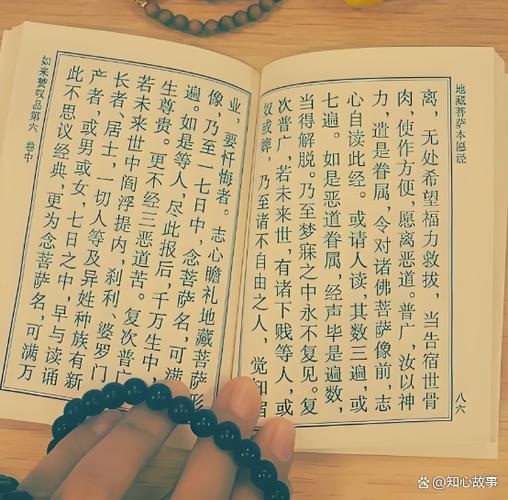 地藏菩萨本愿经
八六
离，无处希望福力救拔，当告宿世骨
肉，使作方便，愿离恶道。普广，汝以神
力，遣是眷属，令对诸佛菩萨像前，志
心自读此经。或请人读，其数三遍，或
七遍。如是恶道眷属，经声毕是遍数，
当得解脱。乃至梦寐之中永不复见。复
次普广，若未来世，有诸下贱等人，或
奴或婢，乃至诸不自由之人，觉知宿
业，要忏悔者。志心瞻礼地藏菩萨
像，乃至一七日中，念菩萨名，可满
遍。如是等人，尽此报后，千万生中
生尊贵。更不经三恶道苦。复次普广
若未来世中阎浮提内，刹利、婆罗门
长者、居士，一切人等及异姓种族有新
产者，或男或女，七日之中，早与读诵
此不思议经典，更为念菩萨名，可满万
如来赞叹品第六 卷中
@知心故事